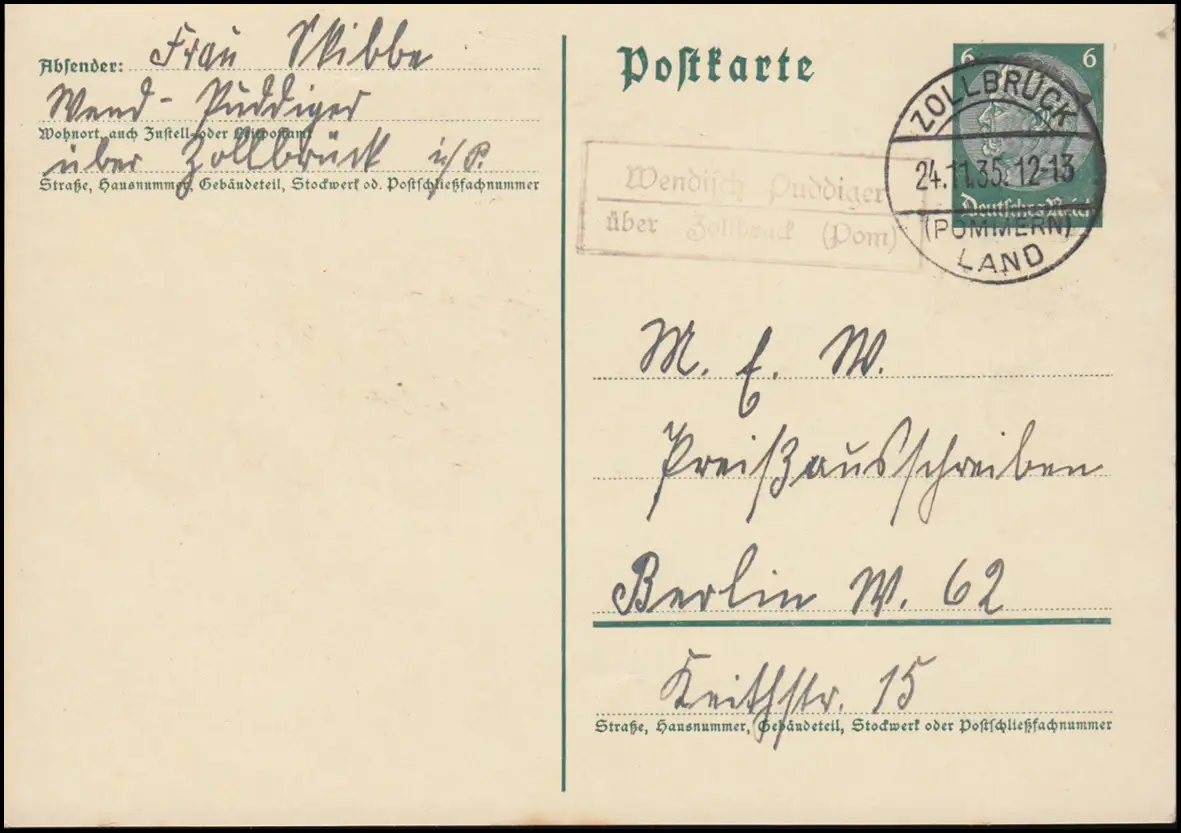 Absender: Frau Skibbe
Wend- Puddiger
Wohnort, auch Zustell- oder Leitpostamt
über Zollbrück i/P.
Straße, Hausnummer, Gebäudeteil, Stockwerk od. Postschließfachnummer
Postkarte
6 6
Deutsches Reich
ZOLLBRÜCK
24.11.35. 12-13
(POMMERN)
LAND
Wendisch Puddiger
über Zollbrück (Pom)
M. E. W.
Preißausschreiben
Berlin W. 62
Keithstr. 15
Straße, Hausnummer, Gebäudeteil, Stockwerk oder Postschließfachnummer